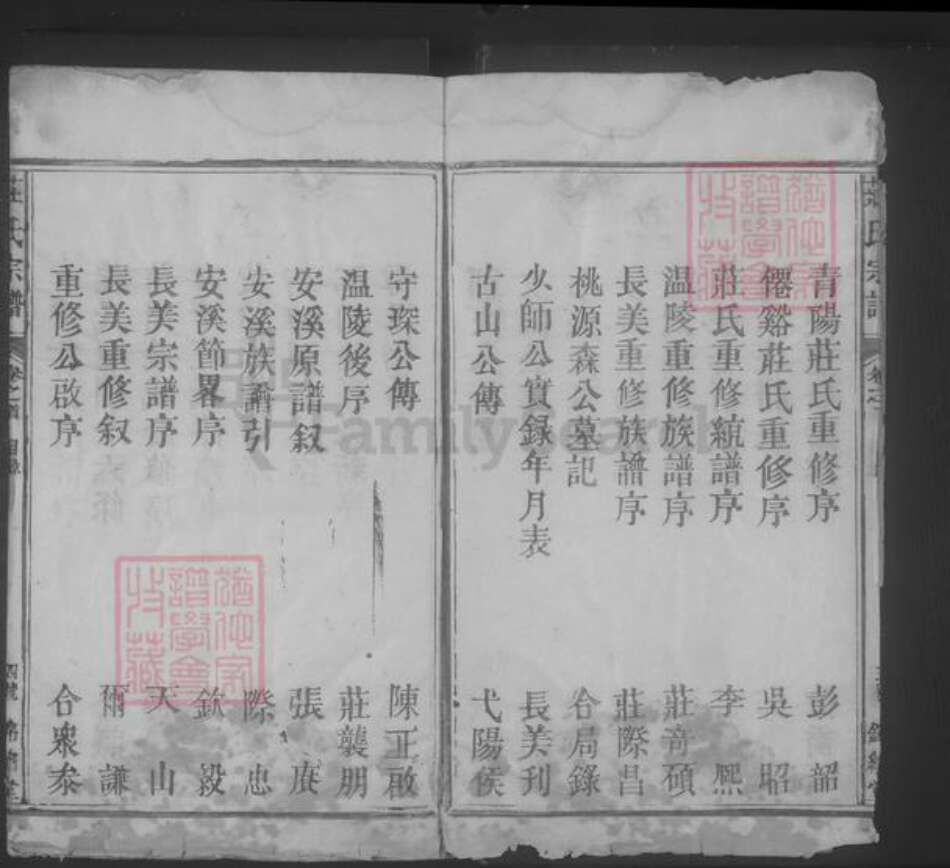 青陽莊氏重修序 彭韶
僊谿莊氏重修序 吳昭
莊氏重修統譜序 李熙
温陵重修族譜序 莊竒碩
長美重修族譜序 莊際昌
桃源森公墓記 合局錄
少師公實録年月表 長美刋
古山公傳 弋陽侯
守琛公傳 陳正啟
温陵後序 莊龔朋
安溪原譜叙 張庚
安溪族譜引 際忠
安溪節畧序 欽毅
長美宗譜序 天山
長美重修叙 爾謙
重修公啟序 合衆叅
莊氏宗譜
卷之首
目錄
FamilySearch